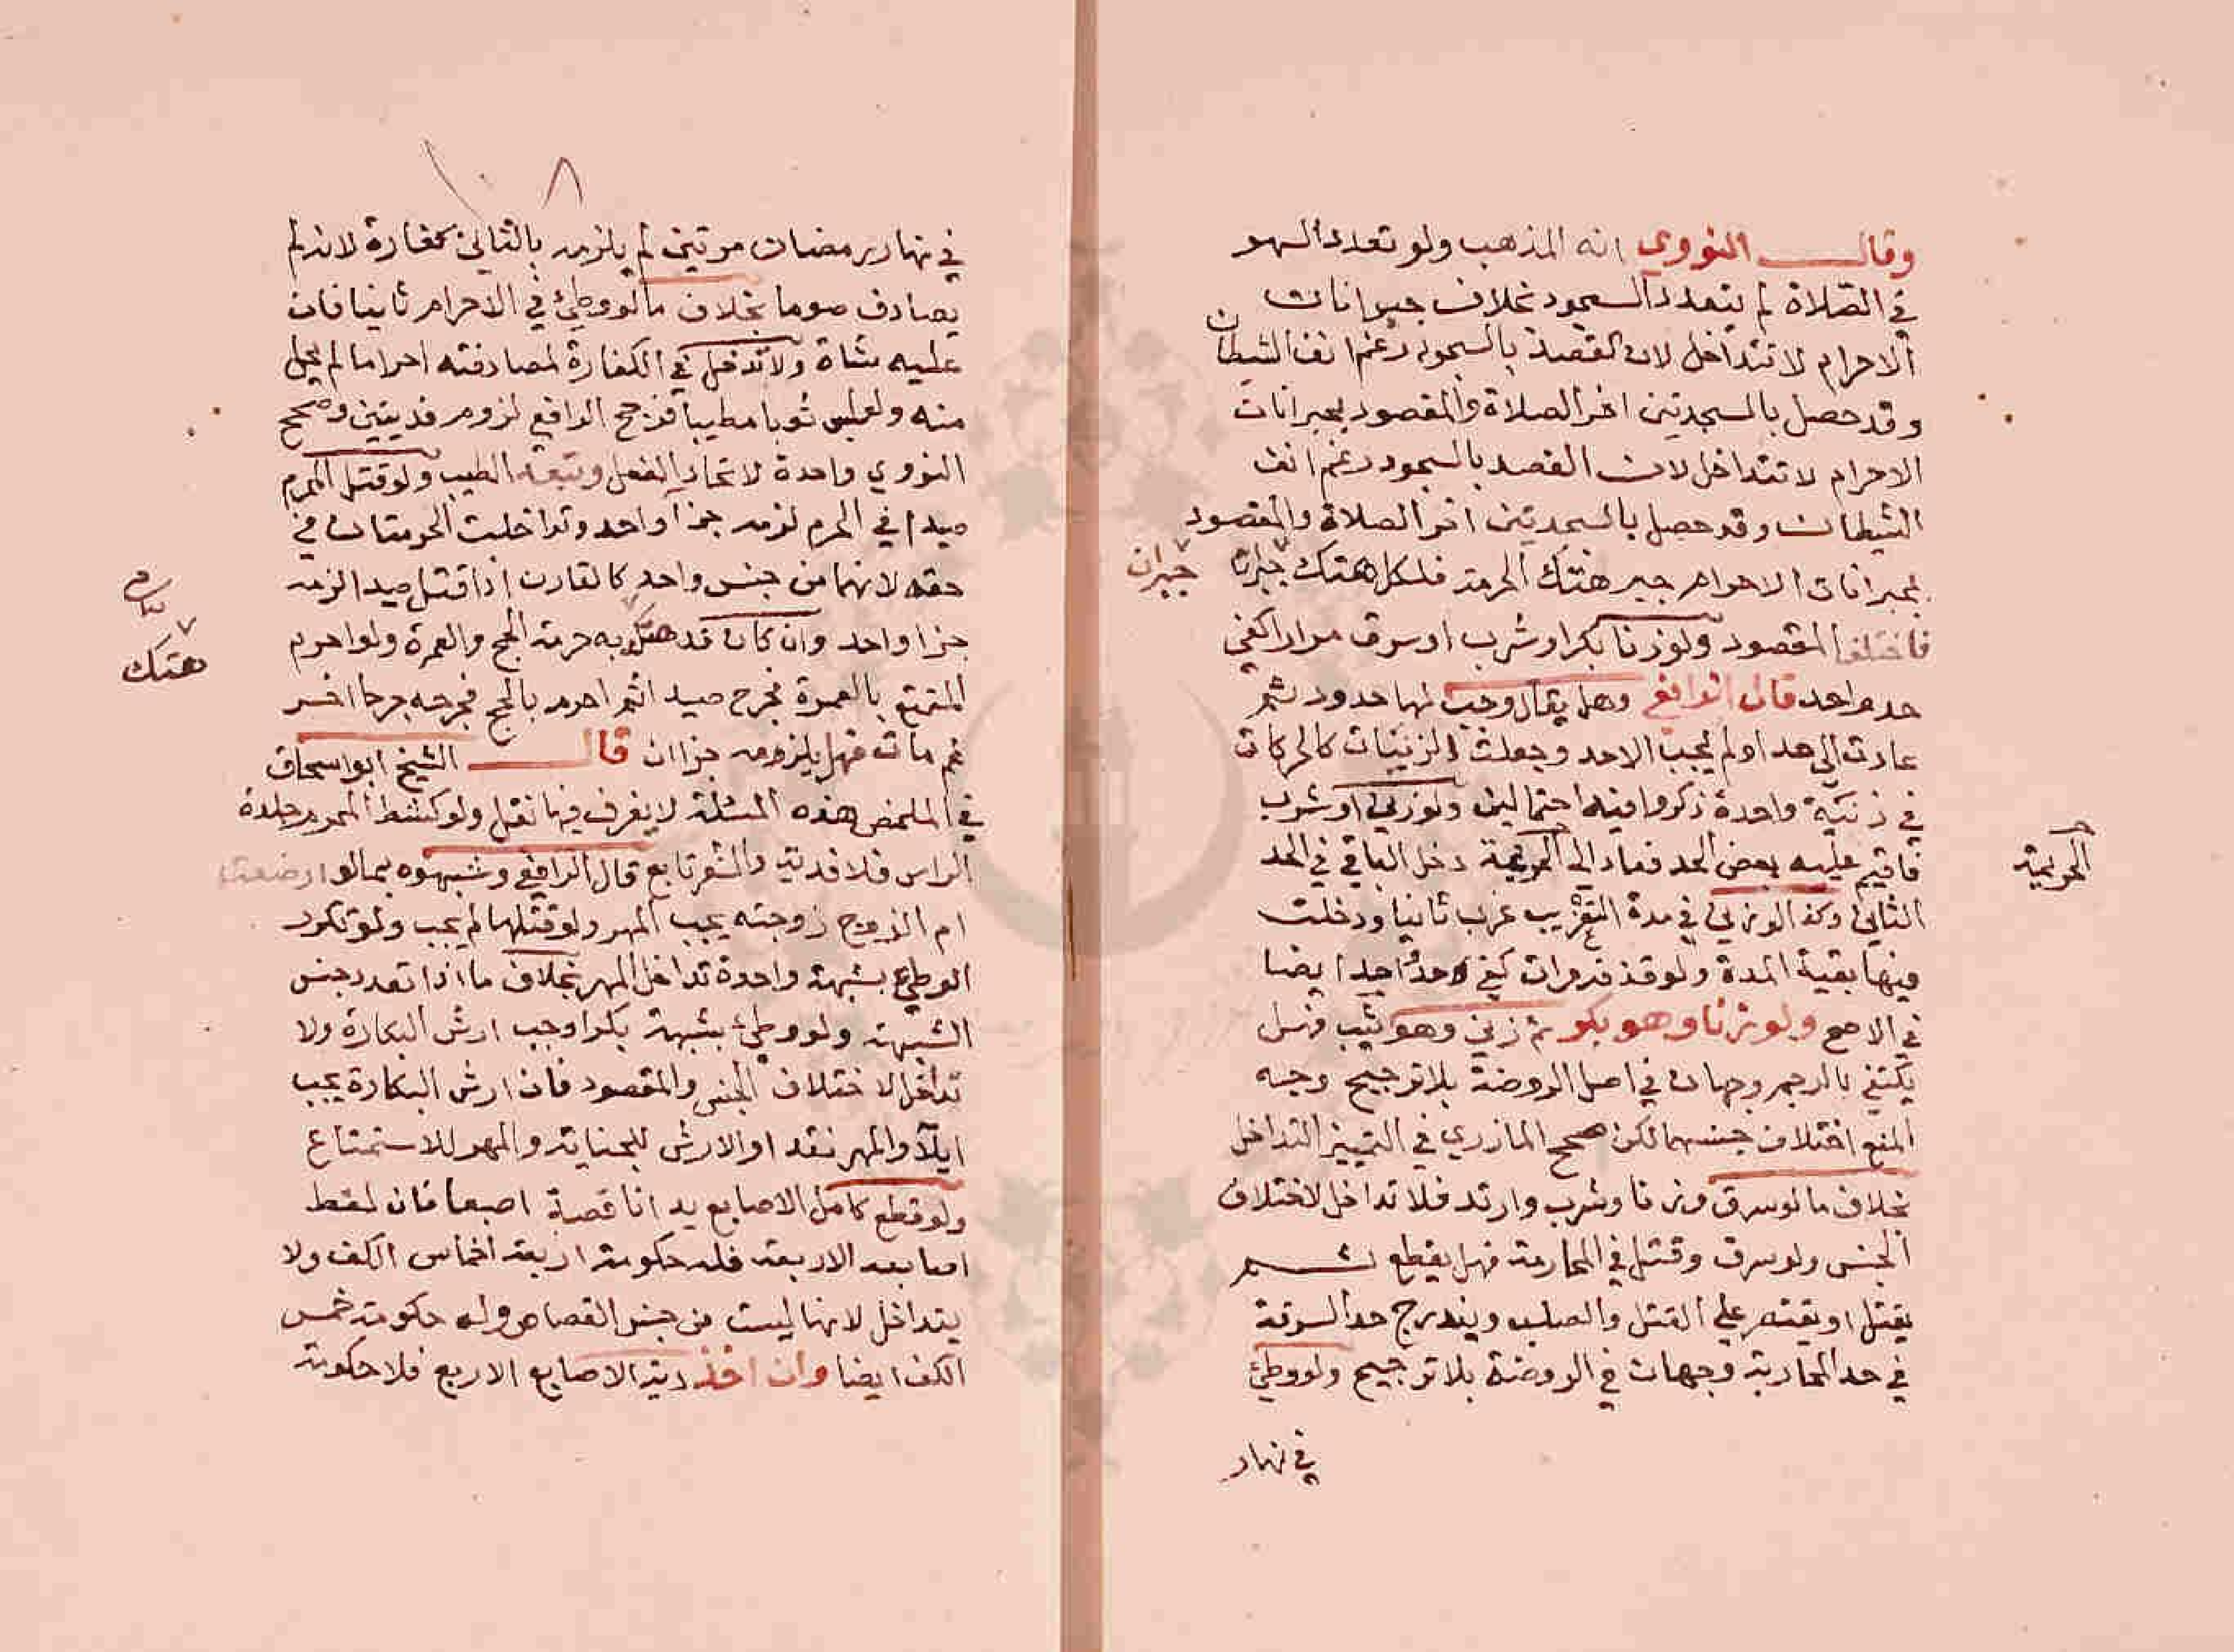 وقال النووي انه المذهب ولو تعدد السهو
في الصلاة لم يتعدد السجود بخلاف جبرانات
الاحرام لا تتداخل لان القصد بالسجود رغم انف الشيطان
وقد حصل بالسجدتين اخر الصلاة والمقصود بجبرانات
الاحرام لا تتداخل لان القصد بالسجود رغم انف
الشيطان وقد حصل بالسجدتين اخر الصلاة والمقصود
بجبرانات الاحرام جبر هتك الحرمة فلكل هتك جبران
جبران
فاختلف المقصود ولو زنا بكرا وشرب او سرق مرارا كفى
حد واحد قال الرافعي وهل يقال وجب لها حدود ثم
عادت الى حد او لم يجب الا حد وجعلت الزنيات كالحركات
في زنية واحدة ذكروا فيه احتمالين ولو زنى او شرب
فاقيم عليه بعض الحد فعاد الى الجريمة دخل الباقي في الحد
الجريمة
الثاني وكذا لو زنى في مدة التغريب غرب ثانيا ودخلت
فيها بقية المدة ولو قذف مرات كفى حد واحد ايضا
في الاصح ولو زنا وهو بكر ثم زنى وهو ثيب فهل
يكتفي بالرجم وجهان في اصل الروضة بلا ترجيح وجه
المنع اختلاف جنسهما لكن صحح المازري في التمييز التداخل
بخلاف ما لو سرق وزنا وشرب وارتد فلا تداخل لاختلاف
الجنس ولو سرق وقتل في المحاربة فهل يقطع ثم
يقتل او يقتصر على القتل والصلب ويندرج حد السرقة
في حد المحاربة وجهان في الروضة بلا ترجيح ولو وطئ
في نهار
١٠٨
في نهار رمضان مرتين لم يلزمه بالثاني كفارة لانه لم
يصادف صوما بخلاف ما لو وطئ في الاحرام ثانيا فان
عليه شاة ولا تدخل في الكفارة لمصادفته احراما لم يحل
منه ولو لبس ثوبا مطيبا فرجح الرافعي لزوم فديتين وصحح
النووي واحدة لاتحاد الفعل وتبعه الطيب ولو قتل المحرم
صيدا في الحرم لزمه جزا واحد وتداخلت الحرمتان في
حقه لانهما من جنس واحد كالقارن اذا قتل صيدا لزمه
جزا واحد وان كان قد هتك به حرمة الحج والعمرة ولو احرم
هتك
المتمتع بالعمرة فجرح صيدا ثم احرم بالحج فجرحه جرحا اخر
ثم مات فهل يلزمه جزاان قال الشيخ ابو اسحاق
في الملخص هذه المسئلة لا يعرف فيها نقل ولو كشط المحرم جلدة
الراس فلا فدية والشعر تابع قال الرافعي وشبهوه بما لو ارضعت
ام الزوج زوجته يجب المهر ولو قتلها لم يجب ولو تكرر
الوطئ بشبهة واحدة تداخل المهر بخلاف ما اذا تعدد جنس
الشبهة ولو وطئ بشبهة بكرا وجب ارش البكارة ولا
تداخل لاختلاف الجنس والمقصود فان ارش البكارة يجب
ايلا والمهر نقدا والارش للجناية والمهر للاستمتاع
ولو قطع كامل الاصابع يدا ناقصة اصبعا فان لقط
اصابعه الاربعة فله حكومة اربعة اخماس الكف ولا
يتداخل لانها ليست من جنس القصاص وله حكومة خمس
الكف ايضا وان اخذ دية الاصابع الاربع فلا حكومة